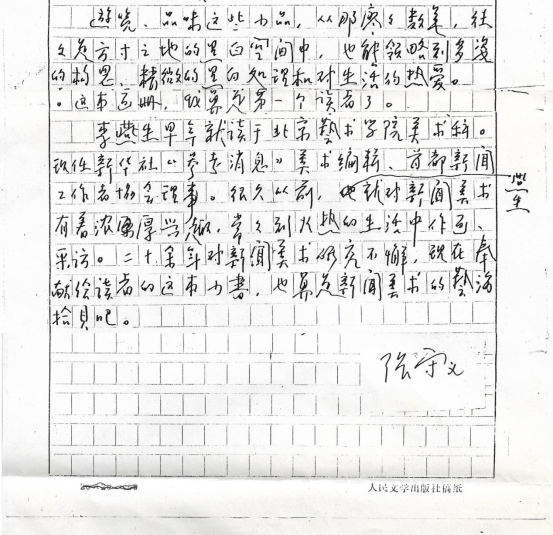 游览、品味这些小品，从那寥々数笔，往
々是方寸之地的黑白空间中，也能领略到多
的构思、精微的黑白处理和对生活的热爱。
。这本画册，我算是第一个读者了。
李燕生早年就读于北京藝术学院美术科。
现任新华社《参考消息》美术编辑、首都新闻
工作者协会理事。很久以前，他就对新闻美术
有着浓厚兴趣，常々到火热的生活中作画、
采访。二十余年对新闻美术研究不懈，现在奉
献给读者的这本小书，也算是新闻美术的藝海
拾贝吧。
张守义
人民文学出版社稿纸